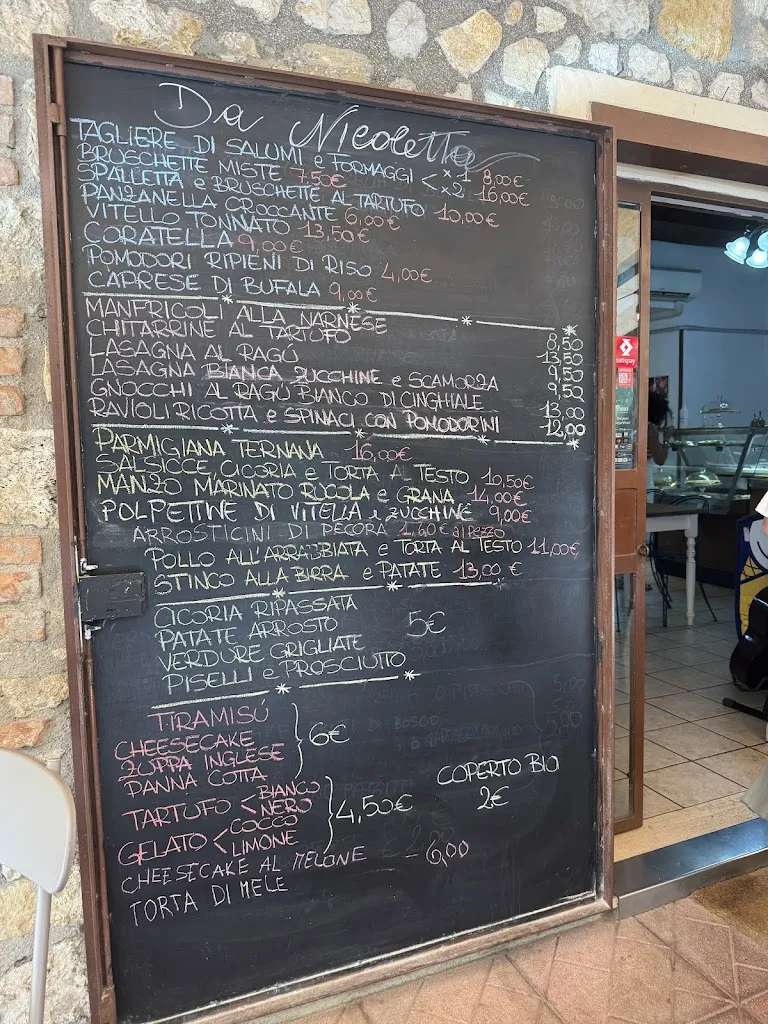 Da Nicoletta
TAGLIERE DI SALUMI e FORMAGGI < x1 8,00€
x2 16,00€
BRUSCHETTE MISTE 7,50€
SPALLETTA e BRUSCHETTE AL TARTUFO 10,00€
PANZANELLA CROCCANTE 6,00€
VITELLO TONNATO 13,50€
CORATELLA 9,00€
POMODORI RIPIENI DI RISO 4,00€
CAPRESE DI BUFALA 9,00€
MANFRICOLI ALLA NARNESE 8,50
CHITARRINE AL TARTUFO 13,50
LASAGNA AL RAGÚ 9,50
LASAGNA BIANCA ZUCCHINE e SCAMORZA 9,50
GNOCCHI AL RAGÚ BIANCO DI CINGHIALE 13,00
RAVIOLI RICOTTA e SPINACI CON POMODORINI 12,00
PARMIGIANA TERNANA 16,00€
SALSICCE, CICORIA e TORTA AL TESTO 10,50€
MANZO MARINATO RUCOLA e GRANA 14,00€
POLPETTINE DI VITELLA e ZUCCHINE 9,00€
ARROSTICINI DI PECORA 1,60€ al pezzo
POLLO ALL'ARRABBIATA e TORTA AL TESTO 11,00€
STINCO ALLA BIRRA e PATATE 13,00€
CICORIA RIPASSATA
PATATE ARROSTO 5€
VERDURE GRIGLIATE
PISELLI e PROSCIUTTO
TIRAMISÚ
CHEESECAKE 6€
ZUPPA INGLESE
PANNA COTTA
TARTUFO < BIANCO
NERO
4,50€
GELATO < COCCO
LIMONE
CHEESECAKE AL MELONE - 6,00
TORTA DI MELE
COPERTO BIO
2€
satispay